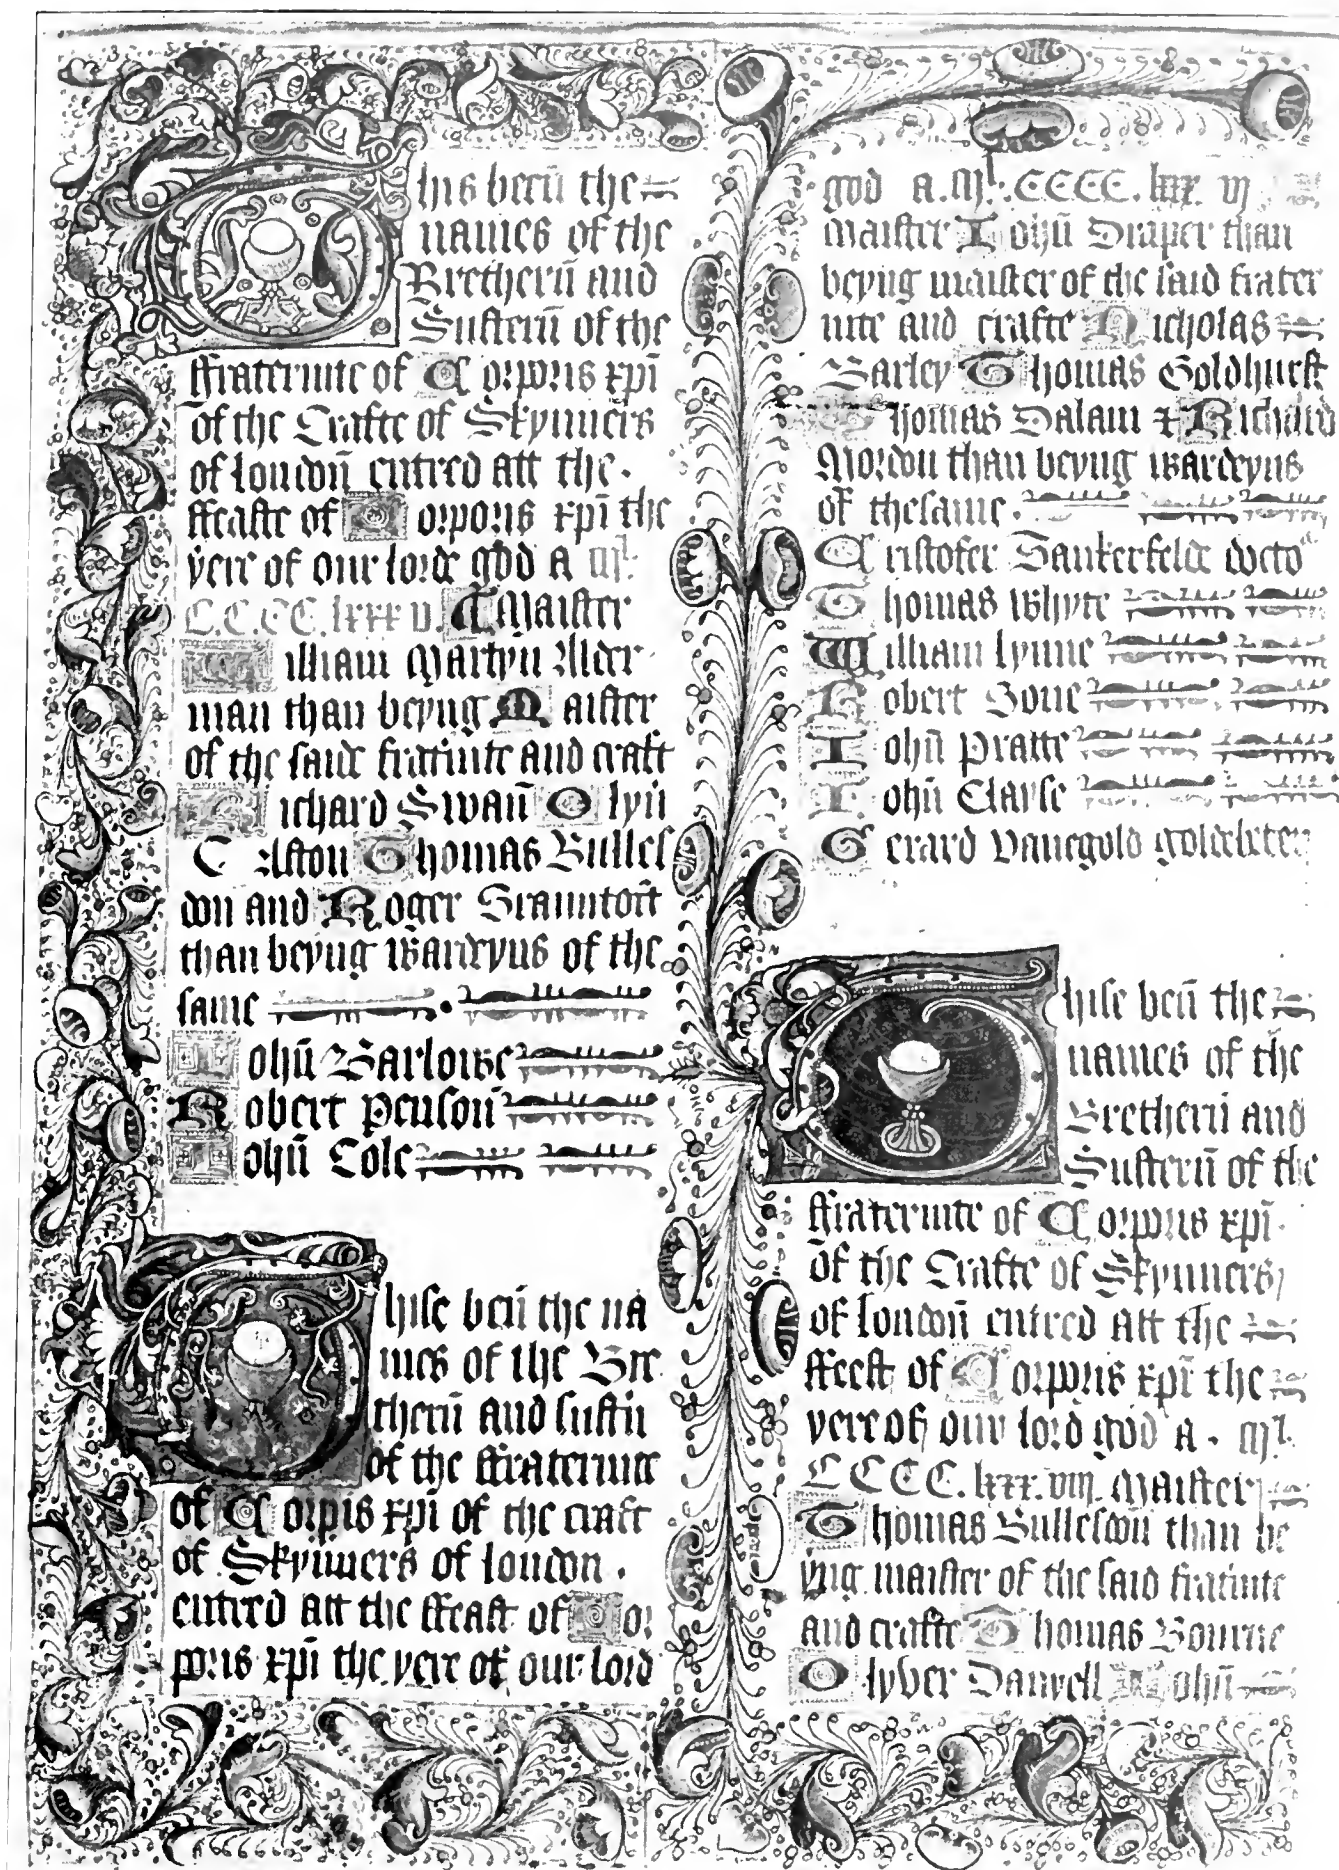 This beeū the
names of the
Bretherū and
Susterū of the
ffraternite of Corporis xpī
of the Crafte of Skynners
of londoū entred att the.
ffeaste of Corporis xpī the
yere of our lorde god a mˡ.
C.C.CC. lxxx v. Maister
William Martyn Alder
man than beyng Maister
of the saide frat̄nite and craft
Richard Swaū Olyū
Caston Thomas Bulles
don and Roger Grauntoft
than beyng Wardeyns of the
same
Johū Barlowe
Robert Pensoū
Johū Cole
Thise beū the na
mes of the Bre
therū and sustū
of the ffraternite
of Corpis xpī of the craft
of Skynners of london.
entred att the ffeast of Cor
poris xpī the yere of our lord
god a.mˡ.CCCC.lxxx. vj
maister Johū Draper than
beyng maister of the said frater
nite and crafte Nicholas
Barley Thomas Goldhurst
Thomas Dalam & Richard
Mordon than beyng Wardeyns
of thesame.
Cristofer Sankerfelde docto
Thomas Whyte
William lynne
Robert Bone
Johū Pratte
Johū Clarse
Gerard Vanegold goldebeter
Thise beū the
names of the
Bretherū and
Susterū of the
ffraternite of Corporis xpī.
of the Crafte of Skynners
of londoū entred att the
ffeest of Corporis xpī the
yere of our lord god a. mˡ.
CCCC. lxxx. viij. Maister
Thomas Bullesdon than be
yng maister of the said frat̄nite
and crafte Thomas Bourne
Olyver Danyell Johū